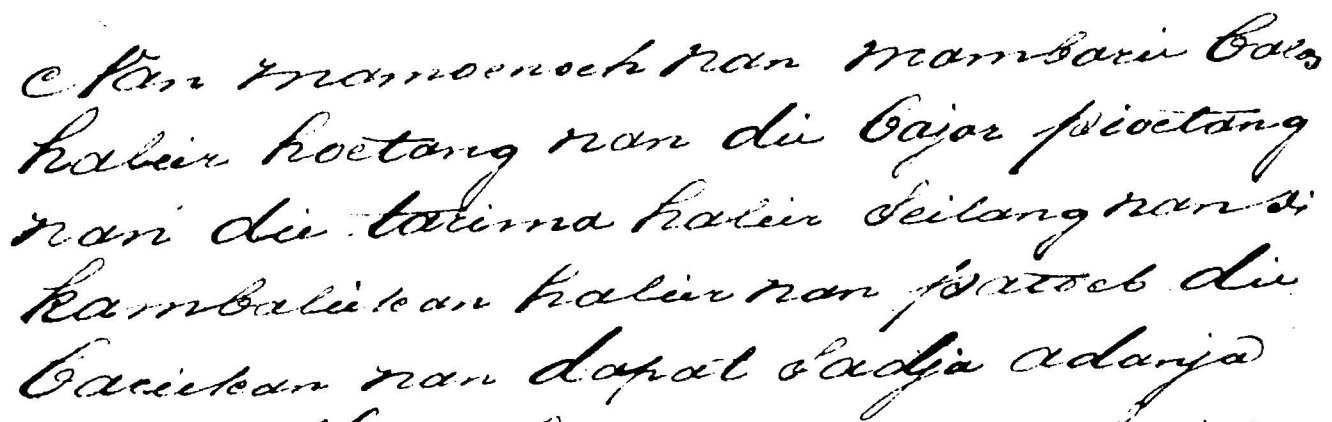 Nan mamoenoeh nan mambarie balas
halier hoetang nan die bajar pioetang
nan die tarima halier seilang nan di
kambaliekan halier nan patoet die
bariekan nan dapat sadja adanja